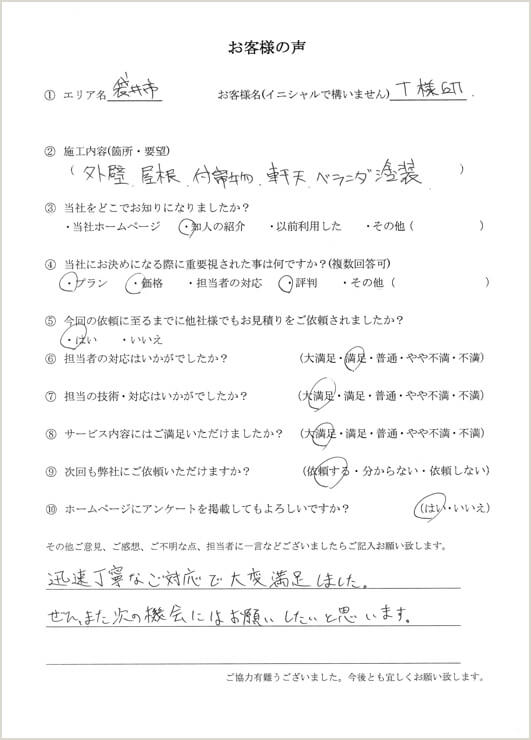 お客様の声
① エリア名 袋井市 お客様名(イニシャルで構いません) T様邸
② 施工内容(箇所・要望)
( 外壁、屋根、付帯物、軒天、ベランダ塗装 )
③ 当社をどこでお知りになりましたか？
・当社ホームページ ・知人の紹介 ・以前利用した ・その他 ( )
④ 当社にお決めになる際に重要視された事は何ですか？(複数回答可)
・プラン ・価格 ・担当者の対応 ・評判 ・その他 ( )
⑤ 今回の依頼に至るまでに他社様でもお見積りをご依頼されましたか？
・はい ・いいえ
⑥ 担当者の対応はいかがでしたか？ (大満足・満足・普通・やや不満・不満)
⑦ 担当の技術・対応はいかがでしたか？ (大満足・満足・普通・やや不満・不満)
⑧ サービス内容にはご満足いただけましたか？ (大満足・満足・普通・やや不満・不満)
⑨ 次回も弊社にご依頼いただけますか？ (依頼する・分からない・依頼しない)
⑩ ホームページにアンケートを掲載してもよろしいですか？ (はい・いいえ)
その他ご意見、ご感想、ご不明な点、担当者に一言などございましたらご記入お願い致します。
迅速丁寧なご対応で大変満足しました。
ぜひ、また次の機会にはお願いしたいと思います。
ご協力有難うございました。今後とも宜しくお願い致します。